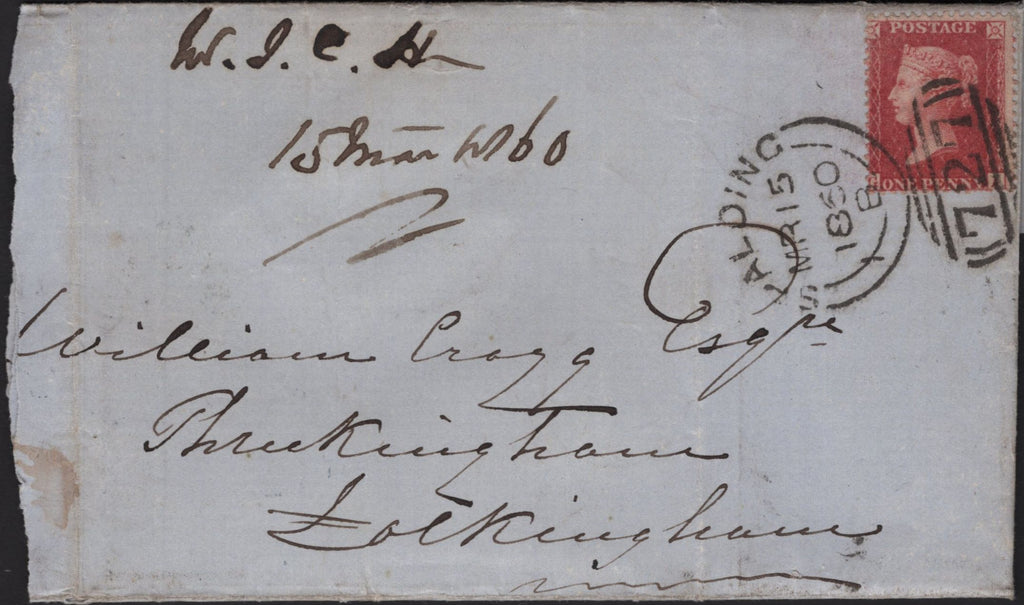 W. J. C. H
15 Mar 1860
POSTAGE
ONE PENNY
SPALDING
MR 15
1860
B
727
William Cragg Esqre
Threekingham
Folkingham